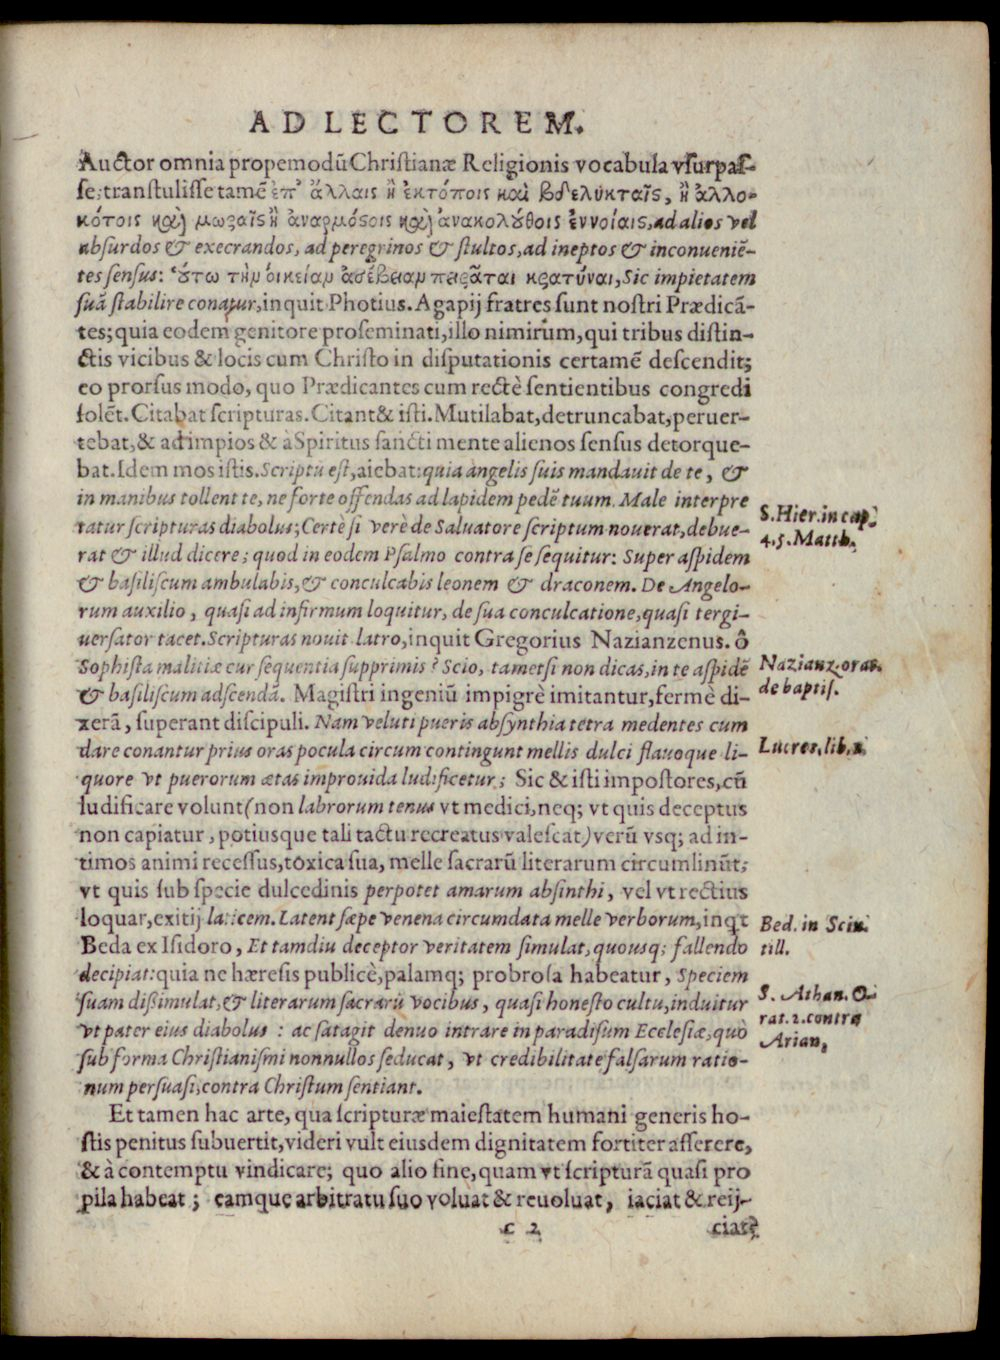 AD LECTOREM.
Auctor omnia propemodũ Christianæ Religionis vocabula vsurpas-
se; transtulisse tamẽ ἐπ' ἄλλαις ἢ ἐκτόποις καὶ βδελύκταῖς, ἢ ἀλλο-
κότοις καὶ μωραῖς ἢ ἀναρμόςοις καὶ ἀνακολύθοις ἐννοίαις, ad alios vel
absurdos & execrandos, ad peregrinos & stultos, ad ineptos & inconueniẽ-
tes sensus: ὕτω τὴν οἰκείαν ἀσέβειαν πειρᾶται κρατύναι, Sic impietatem
suã stabilire conatur, inquit Photius. Agapij fratres sunt nostri Prædicã-
tes; quia eodem genitore proseminati, illo nimirum, qui tribus distin-
ctis vicibus & locis cum Christo in disputationis certamẽ descendit;
eo prorsus modo, quo Prædicantes cum rectè sentientibus congredi
solẽt. Citabat scripturas. Citant & isti. Mutilabat, detruncabat, peruer-
tebat, & ad impios & à Spiritus sancti mente alienos sensus detorque-
bat. Idem mos istis. Scriptũ est, aiebat: quia angelis suis mandauit de te, &
in manibus tollent te, ne forte offendas ad lapidem pedẽ tuum. Male interpre
tatur scripturas diabolus; Certè si verè de Saluatore scriptum nouerat, debue-
rat & illud dicere; quod in eodem Psalmo contra se sequitur: Super aspidem
& basiliscum ambulabis, & conculcabis leonem & draconem. De Angelo-
rum auxilio, quasi ad infirmum loquitur, de sua conculcatione, quasi tergi-
uersator tacet. Scripturas nouit latro, inquit Gregorius Nazianzenus. ô
Sophista malitiæ cur sequentia supprimis? Scio, tametsi non dicas, in te aspidẽ
& basiliscum adscendã. Magistri ingeniũ impigrè imitantur, fermè di-
xerã, superant discipuli. Nam veluti pueris absynthia tetra medentes cum
dare conantur prius oras pocula circum contingunt mellis dulci flauoque li-
quore vt puerorum ætas improuida ludificetur; Sic & isti impostores, cũ
ludificare volunt (non labrorum tenus vt medici, neq; vt quis deceptus
non capiatur, potiusque tali tactu recreatus valescat) verũ vsq; ad in-
timos animi recessus, toxica sua, melle sacrarũ literarum circumlinũt;
vt quis sub specie dulcedinis perpotet amarum absinthi, vel vt rectius
loquar, exitij laticem. Latent sæpe venena circumdata melle verborum, inqt
Beda ex Isidoro, Et tamdiu deceptor veritatem simulat, quousq; fallendo
decipiat: quia ne hæresis publicè, palamq; probrosa habeatur, Speciem
suam dißimulat, & literarum sacrarũ vocibus, quasi honesto cultu, induitur
vt pater eius diabolus : ac satagit denuo intrare in paradisum Ecclesiæ, quò
sub forma Christianismi nonnullos seducat, vt credibilitate falsarum ratio-
num persuasi, contra Christum sentiant.
Et tamen hac arte, qua scripturæ maiestatem humani generis ho-
stis penitus subuertit, videri vult eiusdem dignitatem fortiter asserere,
& à contemptu vindicare; quo alio fine, quam vt scripturã quasi pro
pila habeat ; eamque arbitratu suo voluat & reuoluat, iaciat & reij-
c 2 ciat;
S. Hier. in cap.
4. 5. Matth.
Nazianz. orat.
de baptis.
Lucret. lib. 1.
Bed. in Scin
till.
S. Athan. O-
rat. 2. contra
Arian,